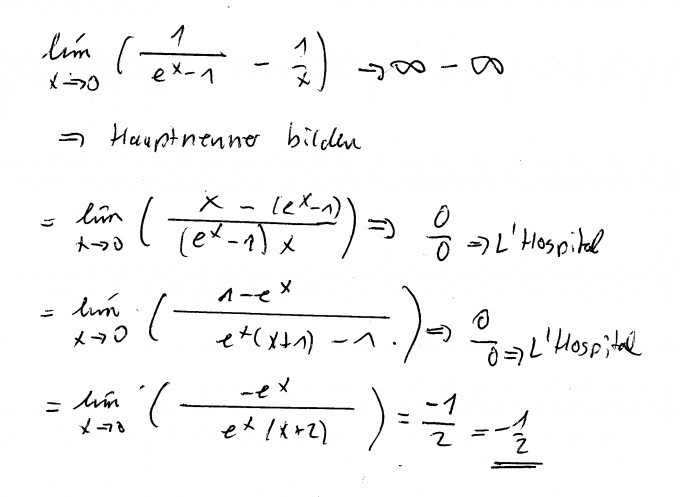 lim x→0 ( 1/(e^x-1) - 1/x ) → ∞ - ∞
⇒ Hauptnenner bilden
= lim x→0 ( (x - (e^x-1))/((e^x-1) x) ) ⇒ 0/0 ⇒ L'Hospital
= lim x→0 ( (1-e^x)/(e^x(x+1) - 1) ) ⇒ 0/0 ⇒ L'Hospital
= lim x→0 ( (-e^x)/(e^x(x+2)) ) = -1/2 = -1/2